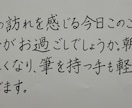 の訪れを感じる今日このご
がお過ごしでしょうか。朝
くなり、筆を持つ手も軽
でます。